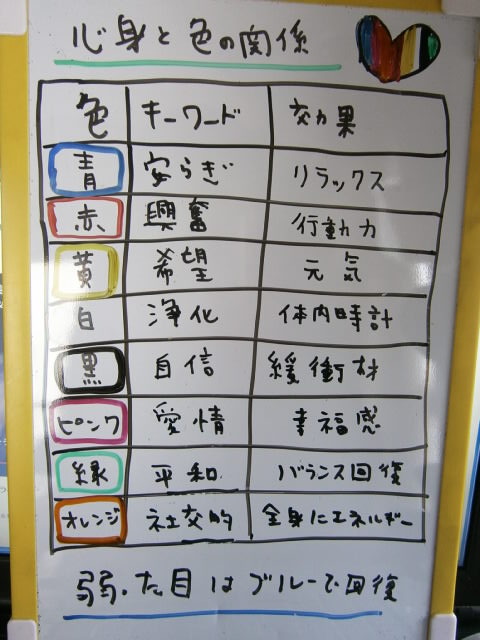 心身と色の関係
色 キーワード 効果
青 安らぎ リラックス
赤 興奮 行動力
黄 希望 元気
白 浄化 体内時計
黒 自信 緩衝材
ピンク 愛情 幸福感
緑 平和 バランス回復
オレンジ 社交的 全身にエネルギー
弱った目はブルーで回復